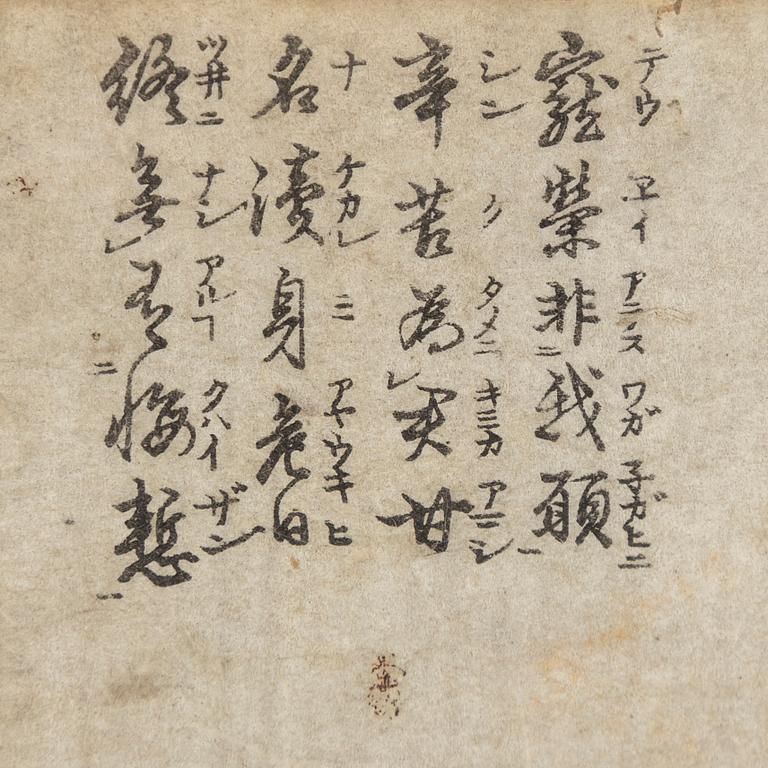 テウ ヱイ アラス ワガ 子ガヒニ
寵榮非二我願一
シン ク タメニ キミカ アマシ
辛苦為レ君甘
ナ ケカレ ミ アヤウキ ヒ
名瀆身危日
ツ井ニ ナシ アルヿ クハイ ザン
終無レ有二悔慙一